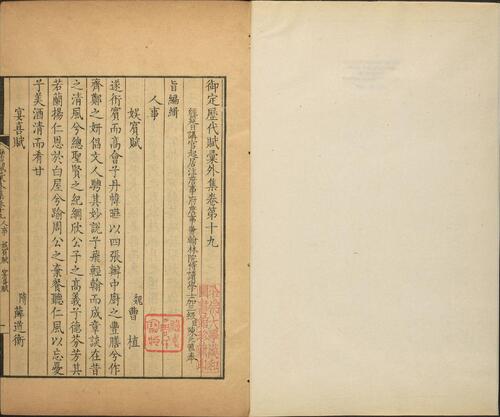 御定歷代賦彙外集卷第十九
經筵日講官起居注詹事府詹事兼翰林院侍讀學士加三級臣陳元龍奉
旨編輯
人事
娛賓賦 魏曹植
遂衎賓而高會兮丹幃曄以四張辦中廚之豐膳兮作
齊鄭之妍倡文人騁其妙說兮飛輕翰而成章談在昔
之清風兮總聖賢之紀綱欣公子之高義兮德芬芳其
若蘭揚仁恩於白屋兮踰周公之棄餐聽仁風以忘憂
兮美酒清而肴甘
宴喜賦 隋蕭道衡
人事 娛賓賦 宴喜賦 一